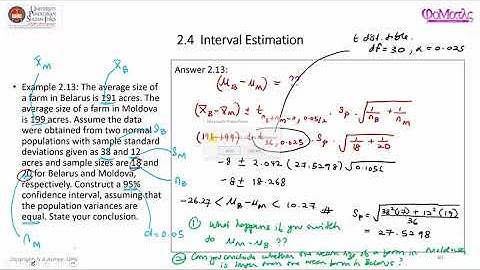 UNIVERSITI
PENDIDIKAN
SULTAN IDRIS
2.4 Interval Estimation
t dist. table.
df = 30, α = 0.025
x̄_M
x̄_B
• Example 2.13: The average size of
a farm in Belarus is 191 acres. The
average size of a farm in Moldova
is 199 acres. Assume the data
were obtained from two normal
populations with sample standard
deviations given as 38 and 12
acres and sample sizes are 18 and
20 for Belarus and Moldova,
respectively. Construct a 95%
confidence interval, assuming that
the population variances are
equal. State your conclusion.
S_B
S_M
n_B
n_M
α = 0.05
Answer 2.13:
(μ_B - μ_M) = ??
(x̄_B - x̄_M) ± t n_B+n_M-2, 0.05/2 · S_p · √(1/n_B + 1/n_M)
(191-199) ± t 36, 0.025 · S_p · √(1/18 + 1/20)
-8 ± 2.042 (27.5298) √0.1056
-8 ± 18.268
-26.27 < μ_B - μ_M < 10.27 #
S_p = √(38²(17) + 12²(19) / 36)
= 27.5298
① What happens if you switch
to μ_M - μ_B ??
② Can you conclude whether the mean size of a farm in Moldova
is larger than the mean farm in Belarus?